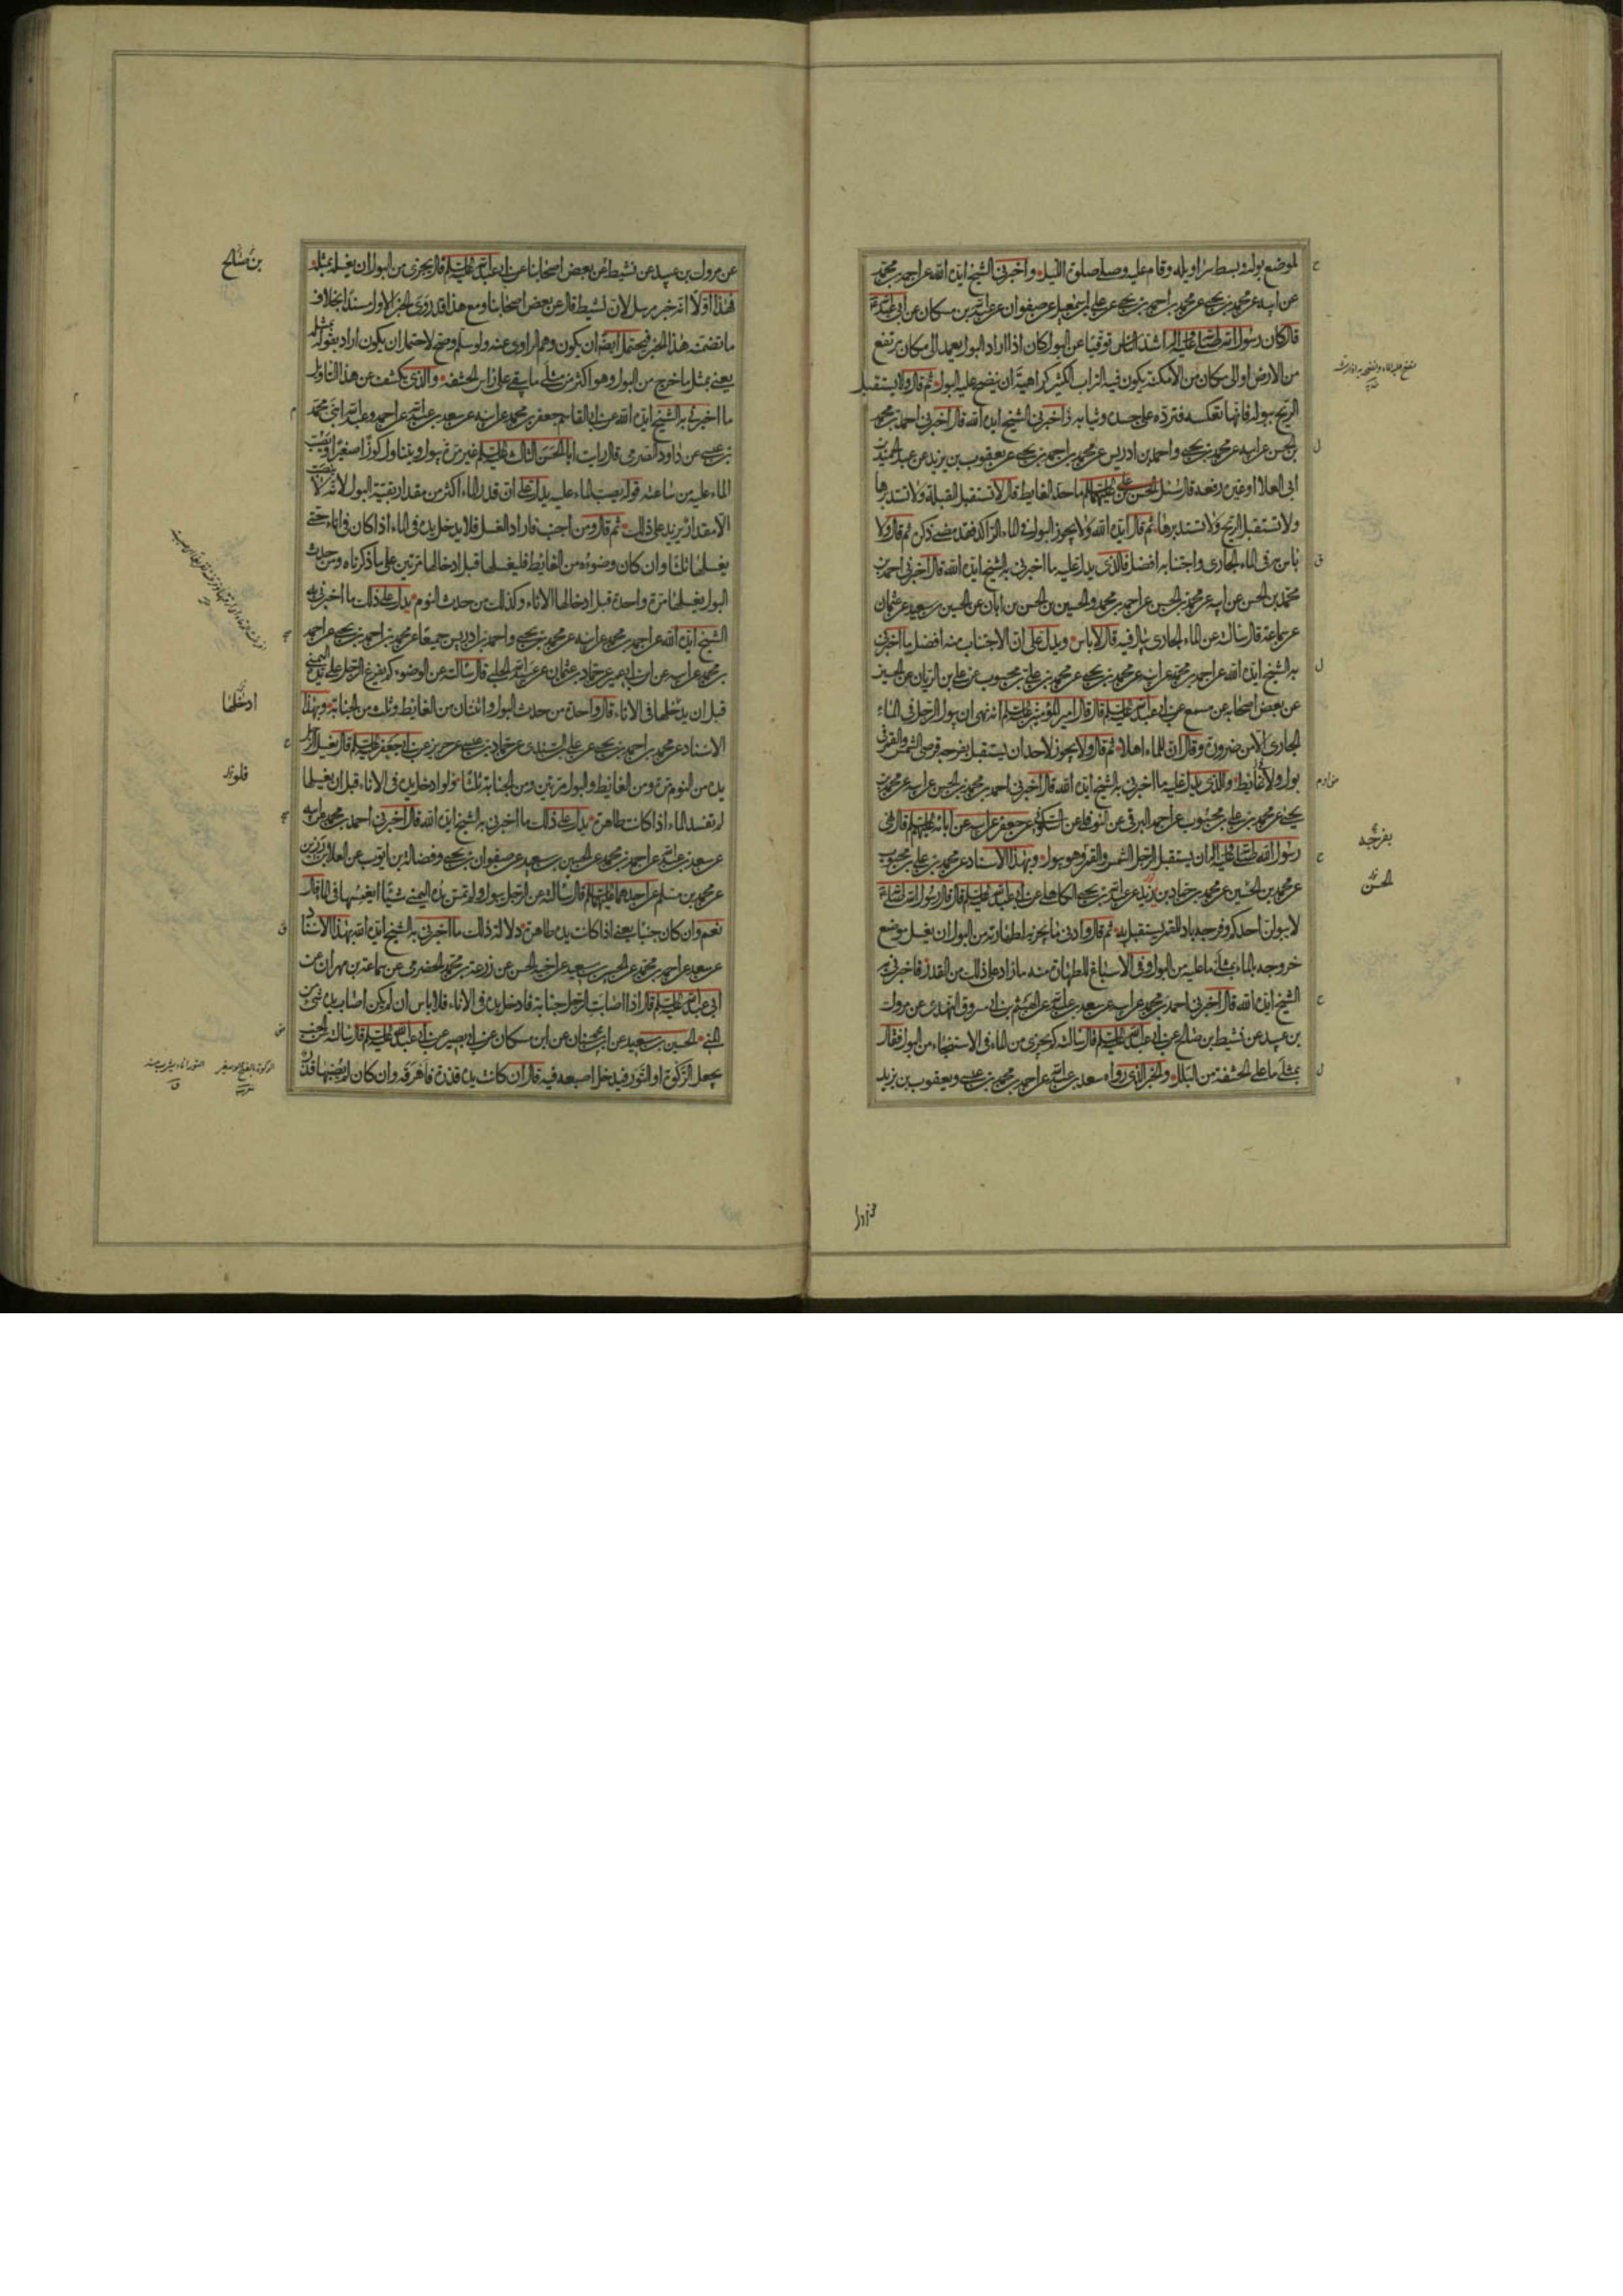 لموضع بوله وبسط سراويله وقام عليه وصلى صلوة الليل واخبرني الشيخ ايده الله عن احمد بن محمد
عن ابيه عن محمد بن يحيى عن محمد بن احمد بن يحيى عن علي بن اسمعيل عن صفوان عن عبد الله بن مسكان عن ابي عبد الله ع
قال كان رسول الله صلى الله عليه واله اشد الناس توقيا عن البول كان اذا اراد البول يعمد الى مكان مرتفع
من الارض او الى مكان من الامكنة يكون فيه التراب الكثير كراهية ان ينضح عليه البول ثم قال ولا يستقبل
الريح ببوله فانها تعكسه فترده على جسده وثيابه واخبرني الشيخ ايده الله قال اخبرني احمد بن محمد
بن الحسن عن ابيه عن محمد بن يحيى واحمد بن ادريس عن محمد بن احمد بن يحيى عن يعقوب بن يزيد عن عبد الحميد بن
ابي العلا او غيره رفعه قال سئل الحسن بن علي عليهما السلم ما حد الغايط قال لا تستقبل القبلة ولا تستدبرها
ولا تستقبل الريح ولا تستدبرها ثم قال ايده الله ولا يجوز البول في الماء الراكد فقد مضى ذكره ثم قال ولا
باس به في الماء الجاري واجتنابه افضل فالذي يدل عليه ما اخبرني به الشيخ ايده الله قال اخبرني احمد بن
محمد بن الحسن عن ابيه عن محمد بن الحسن عن احمد بن محمد والحسين بن الحسن بن ابان عن الحسين بن سعيد عن عثمان
عن سماعة قال سالته عن الماء الجاري يبال فيه قال لا باس ويدل على ان الاجتناب منه افضل ما اخبرني
به الشيخ ايده الله عن احمد بن محمد عن ابيه عن محمد بن يحيى عن محمد بن علي بن محبوب عن علي بن الريان عن الحسين
عن بعض اصحابه عن مسمع عن ابي عبد الله عليه السلم قال قال امير المؤمنين عليه السلم انه نهى ان يبول الرجل في الماء
الجاري الا من ضرورة وقال ان للماء اهلا ثم قال ولا يجوز لاحد ان يستقبل بفرجه قرصي الشمس والقمر في
بول ولا غايط والذي يدل عليه ما اخبرني به الشيخ ايده الله قال اخبرني احمد بن محمد بن الحسن عن ابيه عن محمد بن
يحيى عن محمد بن علي بن محبوب عن احمد البرقي عن النوفلي عن السكوني عن جعفر عن ابيه عن ابائه عليهم السلم قال نهى
رسول الله صلى الله عليه واله ان يستقبل الرجل الشمس والقمر وهو يبول وبهذا الاسناد عن محمد بن علي بن محبوب
عن محمد بن الحسين عن محمد بن حماد بن زيد عن عبد الله بن يحيى الكاهلي عن ابي عبد الله عليه السلم قال قال رسول الله صلى الله ع
لا يبولن احدكم وفرجه باد للقمر يستقبل به ثم قال وادنى ما يجزيه لطهارته من البول ان يغسل موضع
خروجه بالماء بمثلي ما عليه من البول وفي الاسباغ للطهارة منه ما زاد على ذلك من القدر فاخبرني به
الشيخ ايده الله قال اخبرني احمد بن محمد عن ابيه عن سعد بن عبد الله عن الهيثم بن ابي مسروق النهدي عن مروك
بن عبيد عن نشيط بن صالح عن ابي عبد الله عليه السلم قال سالته كم يجزي من الماء في الاستنجاء من البول فقال
بمثلي ما على الحشفة من البلل والخبر الذي رواه سعد بن عبد الله عن احمد بن محمد بن عيسى ويعقوب بن يزيد
بفرجه
الحسن
عن مروك بن عبيد عن نشيط عن بعض اصحابنا عن ابي عبد الله عليه السلم قال يجزي من البول ان يغسله بمثله
فهذا اولا انه خبر مرسل لان نشيط قال عن بعض اصحابنا ومع هذا قد روى الخبر الاول مسندا بخلاف
ما تضمنه هذا الخبر فيحتمل ايضا ان يكون وهم الراوي عنه ولو سلم وصح لاحتمل ان يكون اراد بقوله بمثله
يعني بمثل ما خرج من البول وهو اكثر من مثلي ما يبقى على راس الحشفة والذي يكشف عن هذا التاويل
ما اخبرني به الشيخ ايده الله عن ابي القاسم جعفر بن محمد عن ابيه عن سعد بن عبد الله عن احمد وعبد الله ابني محمد
بن عيسى عن داود الصرمي قال رايت ابا الحسن الثالث عليه السلم غير مرة يبول ويتناول كوزا صغيرا ويصب
الماء عليه من ساعته قوله يصب الماء عليه يدل على ان قدر الماء اكثر من مقدار بقية البول لانه لا ينصب
الا مقدار يزيد على ذلك ثم قال ومن اجنب فاراد الغسل فلا يدخل يده في الماء اذا كان في اناء حتى
يغسلها ثلثا وان كان وضوءه من الغايط فليغسلها قبل ادخالها مرتين على ما ذكرناه ومن حدث
البول يغسلها مرة واحدة قبل ادخالها الاناء وكذلك من حدث النوم يدل على ذلك ما اخبرني به
الشيخ ايده الله عن احمد بن محمد عن ابيه عن محمد بن يحيى واحمد بن ادريس جميعا عن محمد بن احمد بن يحيى عن احمد
بن محمد عن ابيه عن ابن ابي عمير عن حماد بن عثمان عن عبيد الله الحلبي قال سالته عن الوضوء كم يفرغ الرجل على يده اليمنى
قبل ان يدخلها في الاناء قال واحدة من حدث البول واثنتان من الغايط وثلث من الجنابة وبهذا
الاسناد عن محمد بن احمد بن يحيى عن علي بن السندي عن حماد بن عيسى عن حريز عن ابي جعفر عليه السلم قال يغسل الرجل
يده من النوم مرة ومن الغايط والبول مرتين ومن الجنابة ثلثا ولو ادخل يده في الاناء قبل ان يغسلها
لم تفسد الماء اذا كانت طاهرة يدل على ذلك ما اخبرني به الشيخ ايده الله قال اخبرني احمد بن محمد عن ابيه
عن سعد بن عبد الله عن احمد بن محمد عن الحسين بن سعيد عن صفوان بن يحيى وفضالة بن ايوب عن العلا بن رزين
عن محمد بن مسلم عن احدهما عليهما السلم قال سالته عن الرجل يبول ولم تمس يده اليمنى شيئا ايغمسها في الماء قال
نعم وان كان جنبا يعني اذا كانت يده طاهرة دلالة ذلك ما اخبرني به الشيخ ايده الله بهذا الاسناد
عن سعد عن احمد بن محمد عن الحسين بن سعيد عن اخيه الحسن عن زرعة بن محمد الحضرمي عن سماعة بن مهران عن
ابي عبد الله عليه السلم قال اذا اصابت الرجل جنابة فادخل يده في الاناء فلا باس ان لم يكن اصاب يده شيء من
المني الحسين بن سعيد عن ابن سنان عن ابن مسكان عن ابي بصير عن ابي عبد الله عليه السلم قال سالته عن الجنب
يجعل الركوة او التور فيدخل اصبعه فيه قال ان كانت يده قذرة فاهرقه وان كان لم يصبها قذر
بن صالح
ادخلها
فلو